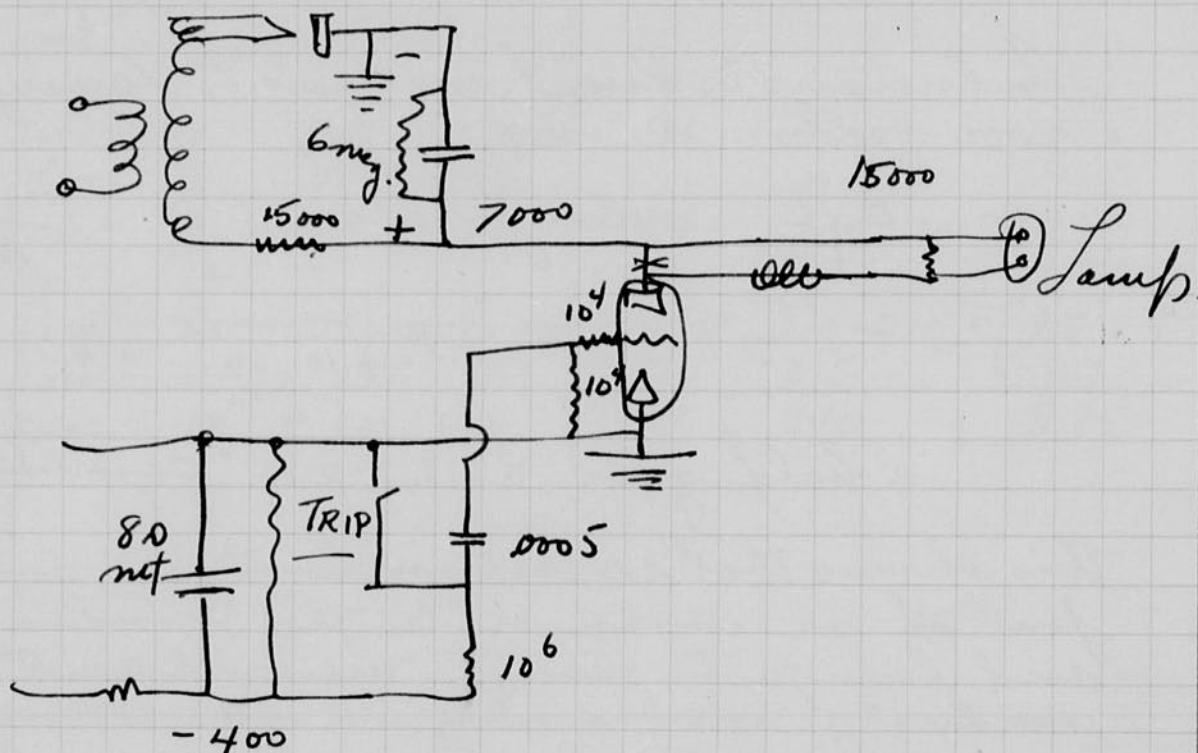 -
6 meg.
15000
+
7000
15000
Lamp.
10⁴
10⁴
TRIP
80
mf
.0005
10⁶
-400